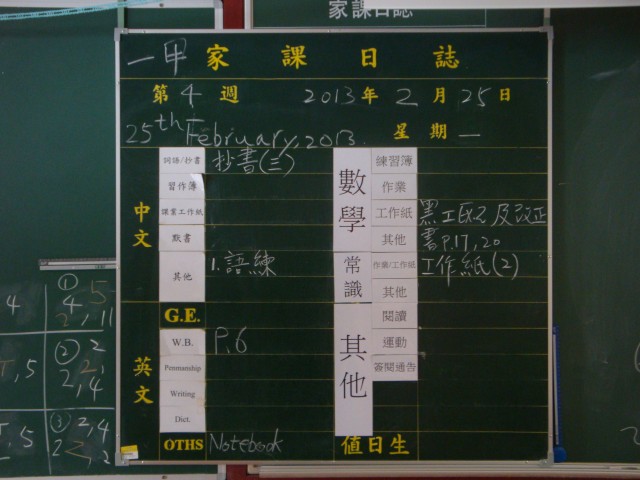 家課日誌
一甲 家課日誌
第4週 2013年2月25日
25th February, 2013. 星期一
中文
詞語/抄書 抄書(三)
習作簿
課業工作紙
默書
其他 1.語練
G.E.
英文
W.B. P.6
Penmanship
Writing
Dict.
OTHS Notebook
數學
練習簿
作業
工作紙
其他 書P.17,20
常識
作業/工作紙 工作紙(2)
其他
其他
閱讀
運動
簽閱通告
值日生
4
① 4 5
2,11
,5
② 2
2,
2,4
,5
③ 2,4
2
,2